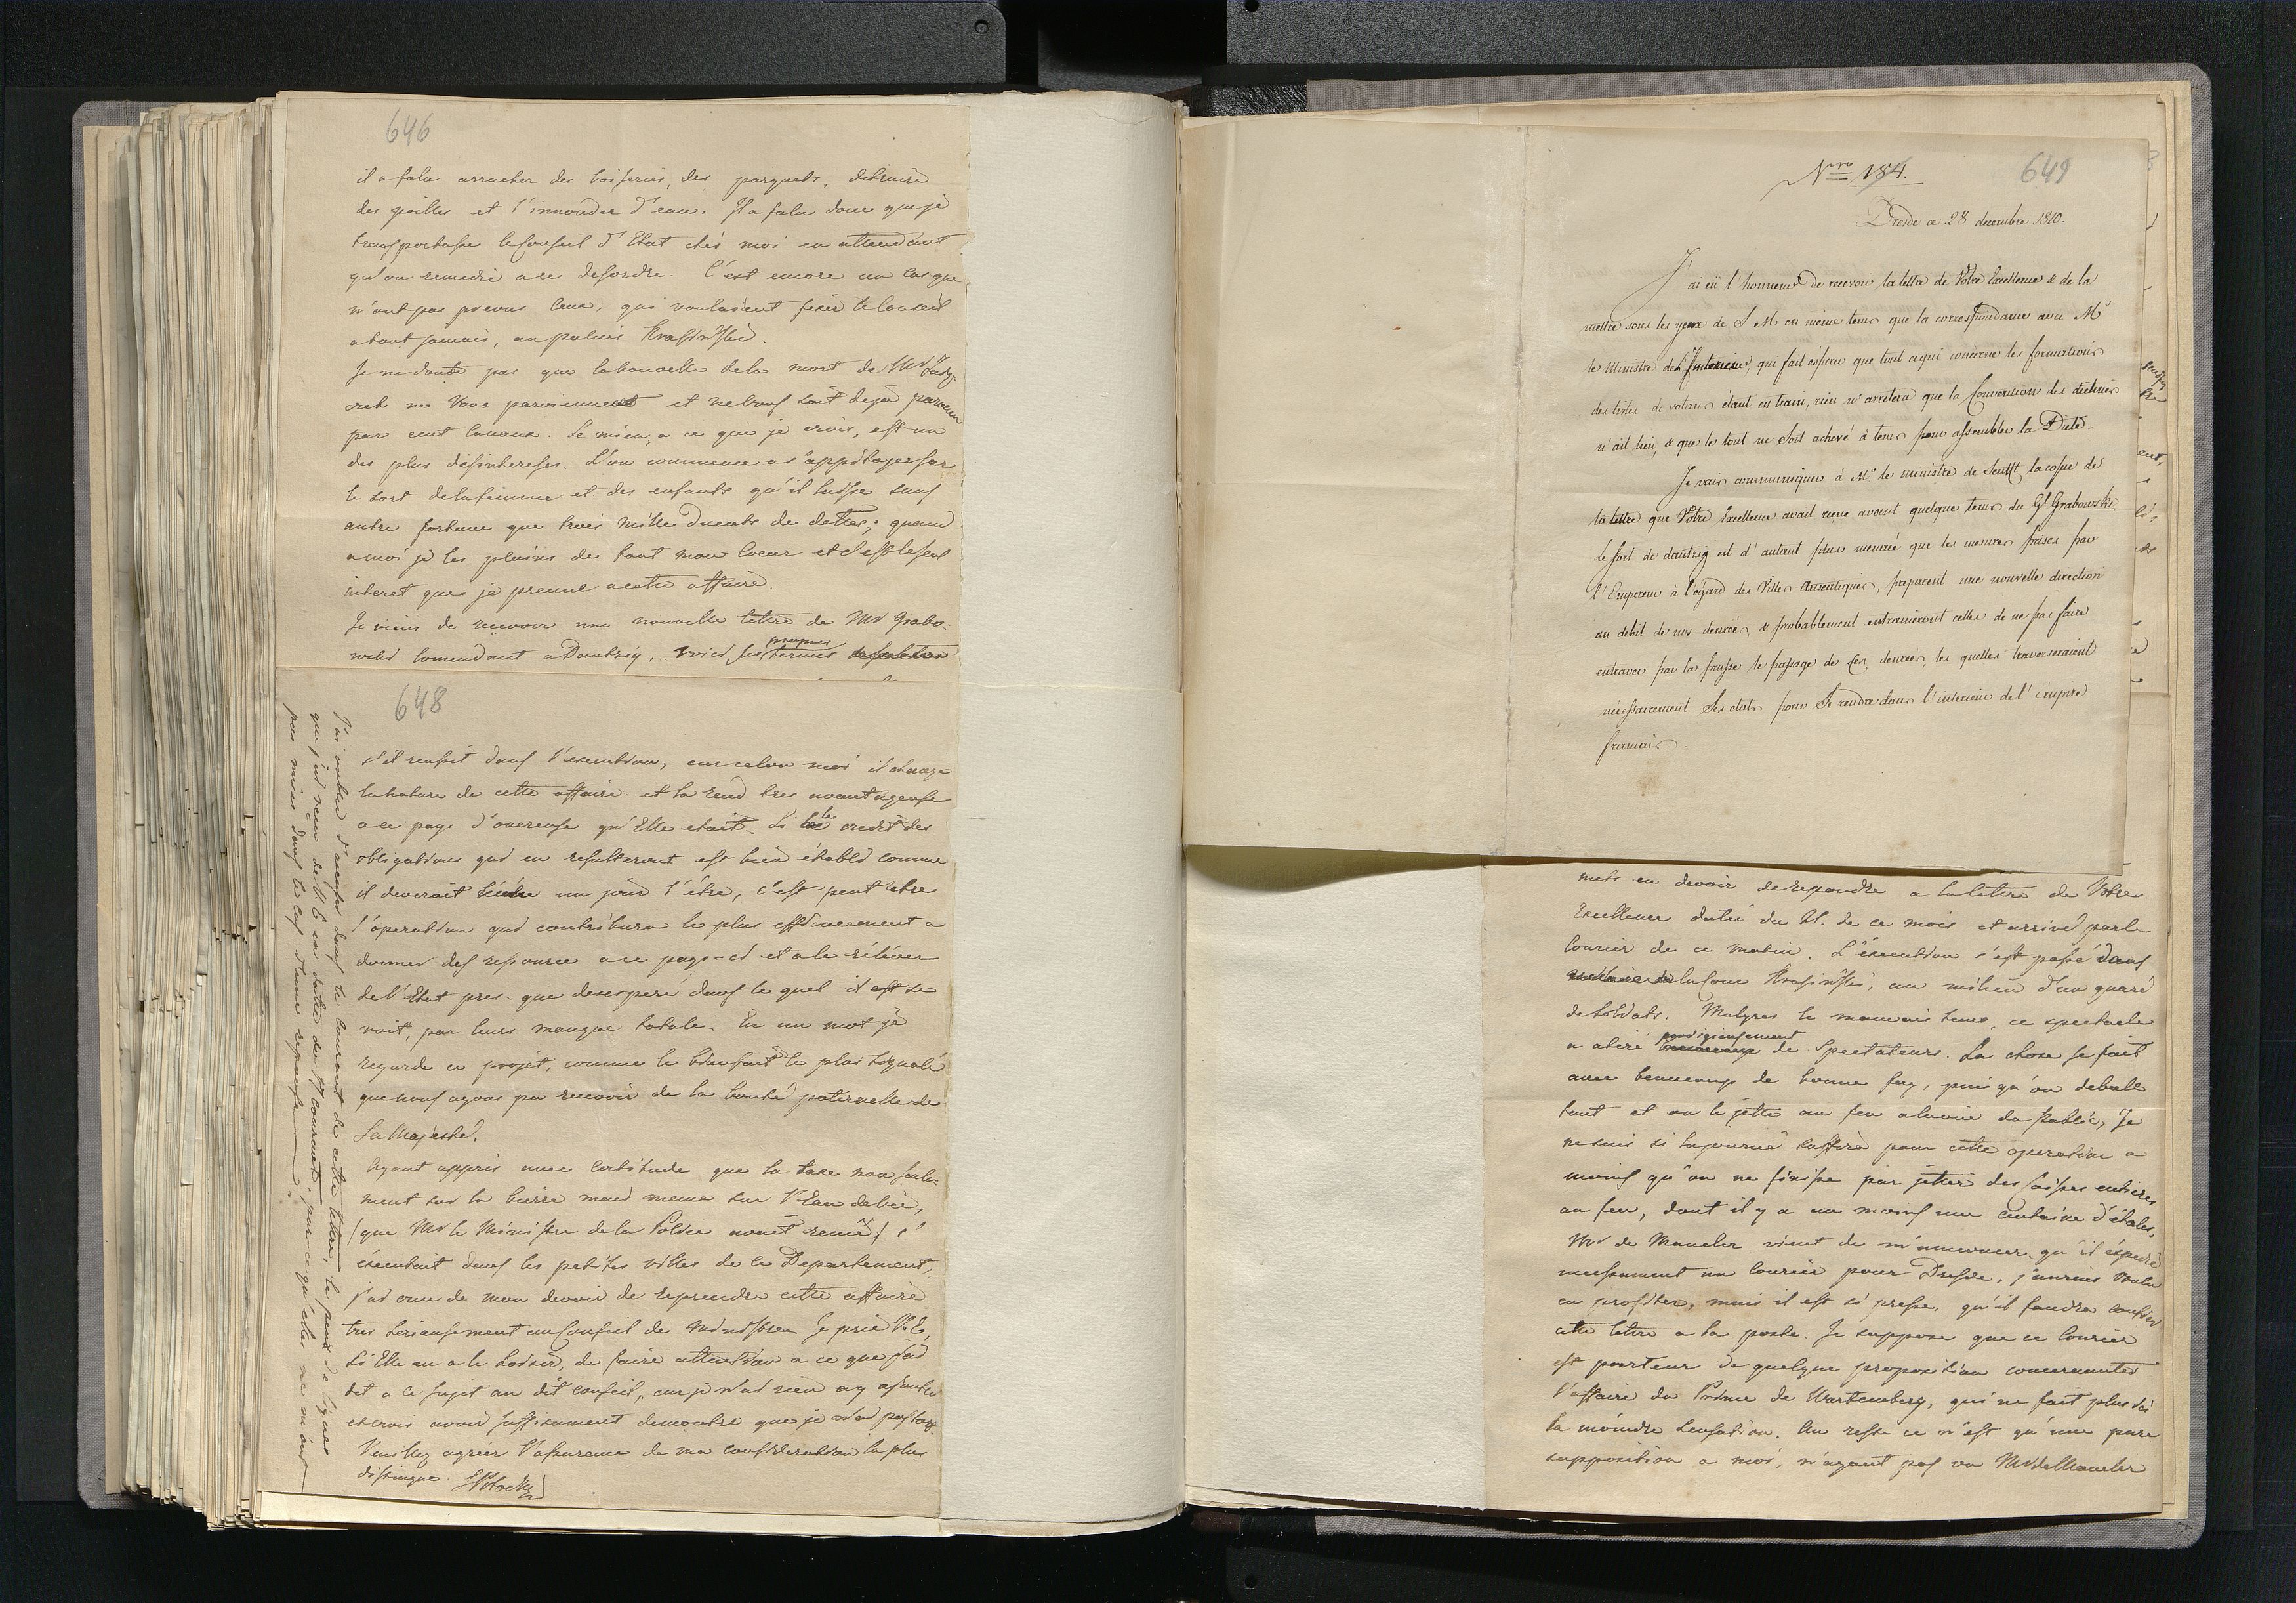 646
il a falu arracher des boiseries, des parquets, detruire
des poilles et l'innonder d'eau. Il a falu donc que je
transportasse le Conseil d'Etat chés moi en attendant
qu'on remedie a ce desordre. C'est encore un cas que
n'ont pas prevus ceux, qui voulaient fixer le Conseil
a tout jamais, au palais Krasinski.
Je ne doute pas que la nouvelle de la mort de Mr
ne Vous parvienne et ne Vous soit deja parvenue
par cent canaux. Le mien, a ce que je crois, est un
des plus desinteresses. L'on commence a s'appitoyer sur
le sort de la femme et des enfants qu'il laisse sans
autre fortune que trois mille Ducats de dettes; quand
a moi je les plains de tout mon Coeur et c'est le seul
interet que je prenne a cette affaire.
Je viens de recevoir une nouvelle lettre de Mr Grabo-
wski Comendant a Dantzig. Voici ses propres termes
648
s'il reussit dans l'execution, car selon moi il change
la nature de cette affaire et la rend tres avantageuse
a ce pays d'onereuse qu'Elle etait. Si le credit des
obligations qui en resulteront est bien établi comme
il deverait un jour l'être, c'est peut etre
l'operation qui contribuera le plus efficacement a
donner des ressource a ce pays-ci et a le rélever
de l'Etat pres-que desesperé dans le quel il se
voit, par leurs manque totale. En un mot je
regarde ce projet, comme le bienfait le plus signalé
que nous ayons pu recevoir de la bonté paternelle de
Sa Majesté.
Ayant appris avec certitude que la taxe non seule-
ment sur la bierre mais meme sur l'Eau de vie,
(que Mr le Ministre de la Police avait renié) s'
éxecutait dans les petites villes de ce Departement,
j'ai crue de mon devoir de reprendre cette affaire
tres serieusement au Conseil de Ministre. Je prie V. E.
si Elle en a le loisir, de faire attention a ce que j'ai
dit a ce sujet au dit conseil, car je n'ai rien a y ajouter
et crois avoir suffisament demontre que je n'ai pas tort.
Veuillez agréer l'assurance de ma consideration la plus
distingue.
J'ai oublié d'accuser dans le courant de cette lettre, le peux de lignes
que j'ai reçu de V. E. en datte du 17 courant, par-ce qu'elles ne m'ont
pas mises dans le cas d'une reponse.
Nro 184.
649
Dresde ce 28 decembre 1810.
J'ai eü l'honneur de recevoir la lettre de Votre Excellence & de la
mettre sous les yeux de S M en même tems que la correspondance avec Mr
le Ministre de l'Interieur, qui fait espérer que tout ce qui concerne les formations
des listes de votans étant en train, rien n'arrêtera que la Convocation des diétines
n'ait lieu, & que le tout ne soit achevé à tems pour assembler la Diete.
Je vais communiquer à Mr le ministre de Senfft la copie de
la lettre que Votre Excellence avait reçue avant quelque tems du Gl Grabowski.
Le sort de dantzig est d'autant plus menacé que les mesures prises par
l'Empereur à l'égard des Villes Anseatiques, preparent une nouvelle direction
au debit de nos denrées, & probablement entraineront celles de ne pas faire
entraver par la prusse le passage de ces denrées, les quelles traverseraient
nécessairement Ses etats pour Se rendre dans l'interieur de l'Empire
francais.
mets en devoir de repondre a la lettre de Votre
Excellence datée du 21. de ce mois et arrivé par le
Courier de ce matin. L'éxecution s'est passé dans
la Cour Krasinski, au milieu d'un quaré
de soldats. Malgres le mauvais tems, ce spectacle
a attiré prodigieusement de Spectateurs. La chose se fait
avec beaucoup de bonne foy, puis qu'on debale
tout et on le jette au feu a la vüe du Public. Je
ne sais si la journé suffira pour cette operation a
moins qu'on ne finisse par jetter des Caisses entieres
au feu, dont il y a au moins une centaine d'étalés.
Mr de Maucler vient de m'annoncer, qu'il éxpedie
incessament un Courier pour Dresde, j'aurais voulu
en profiter, mais il est si pressé, qu'il faudra confier
cette lettre a la poste. Je suppose que ce Courier
est porteur de quelque proposition concernante
l'affaire du Prince de Wurtemberg, qui ne fait plus ici
la moindre sensation. Au reste ce n'est qu'une pure
supposition a moi, n'ayant pas vu Mr de Maucler